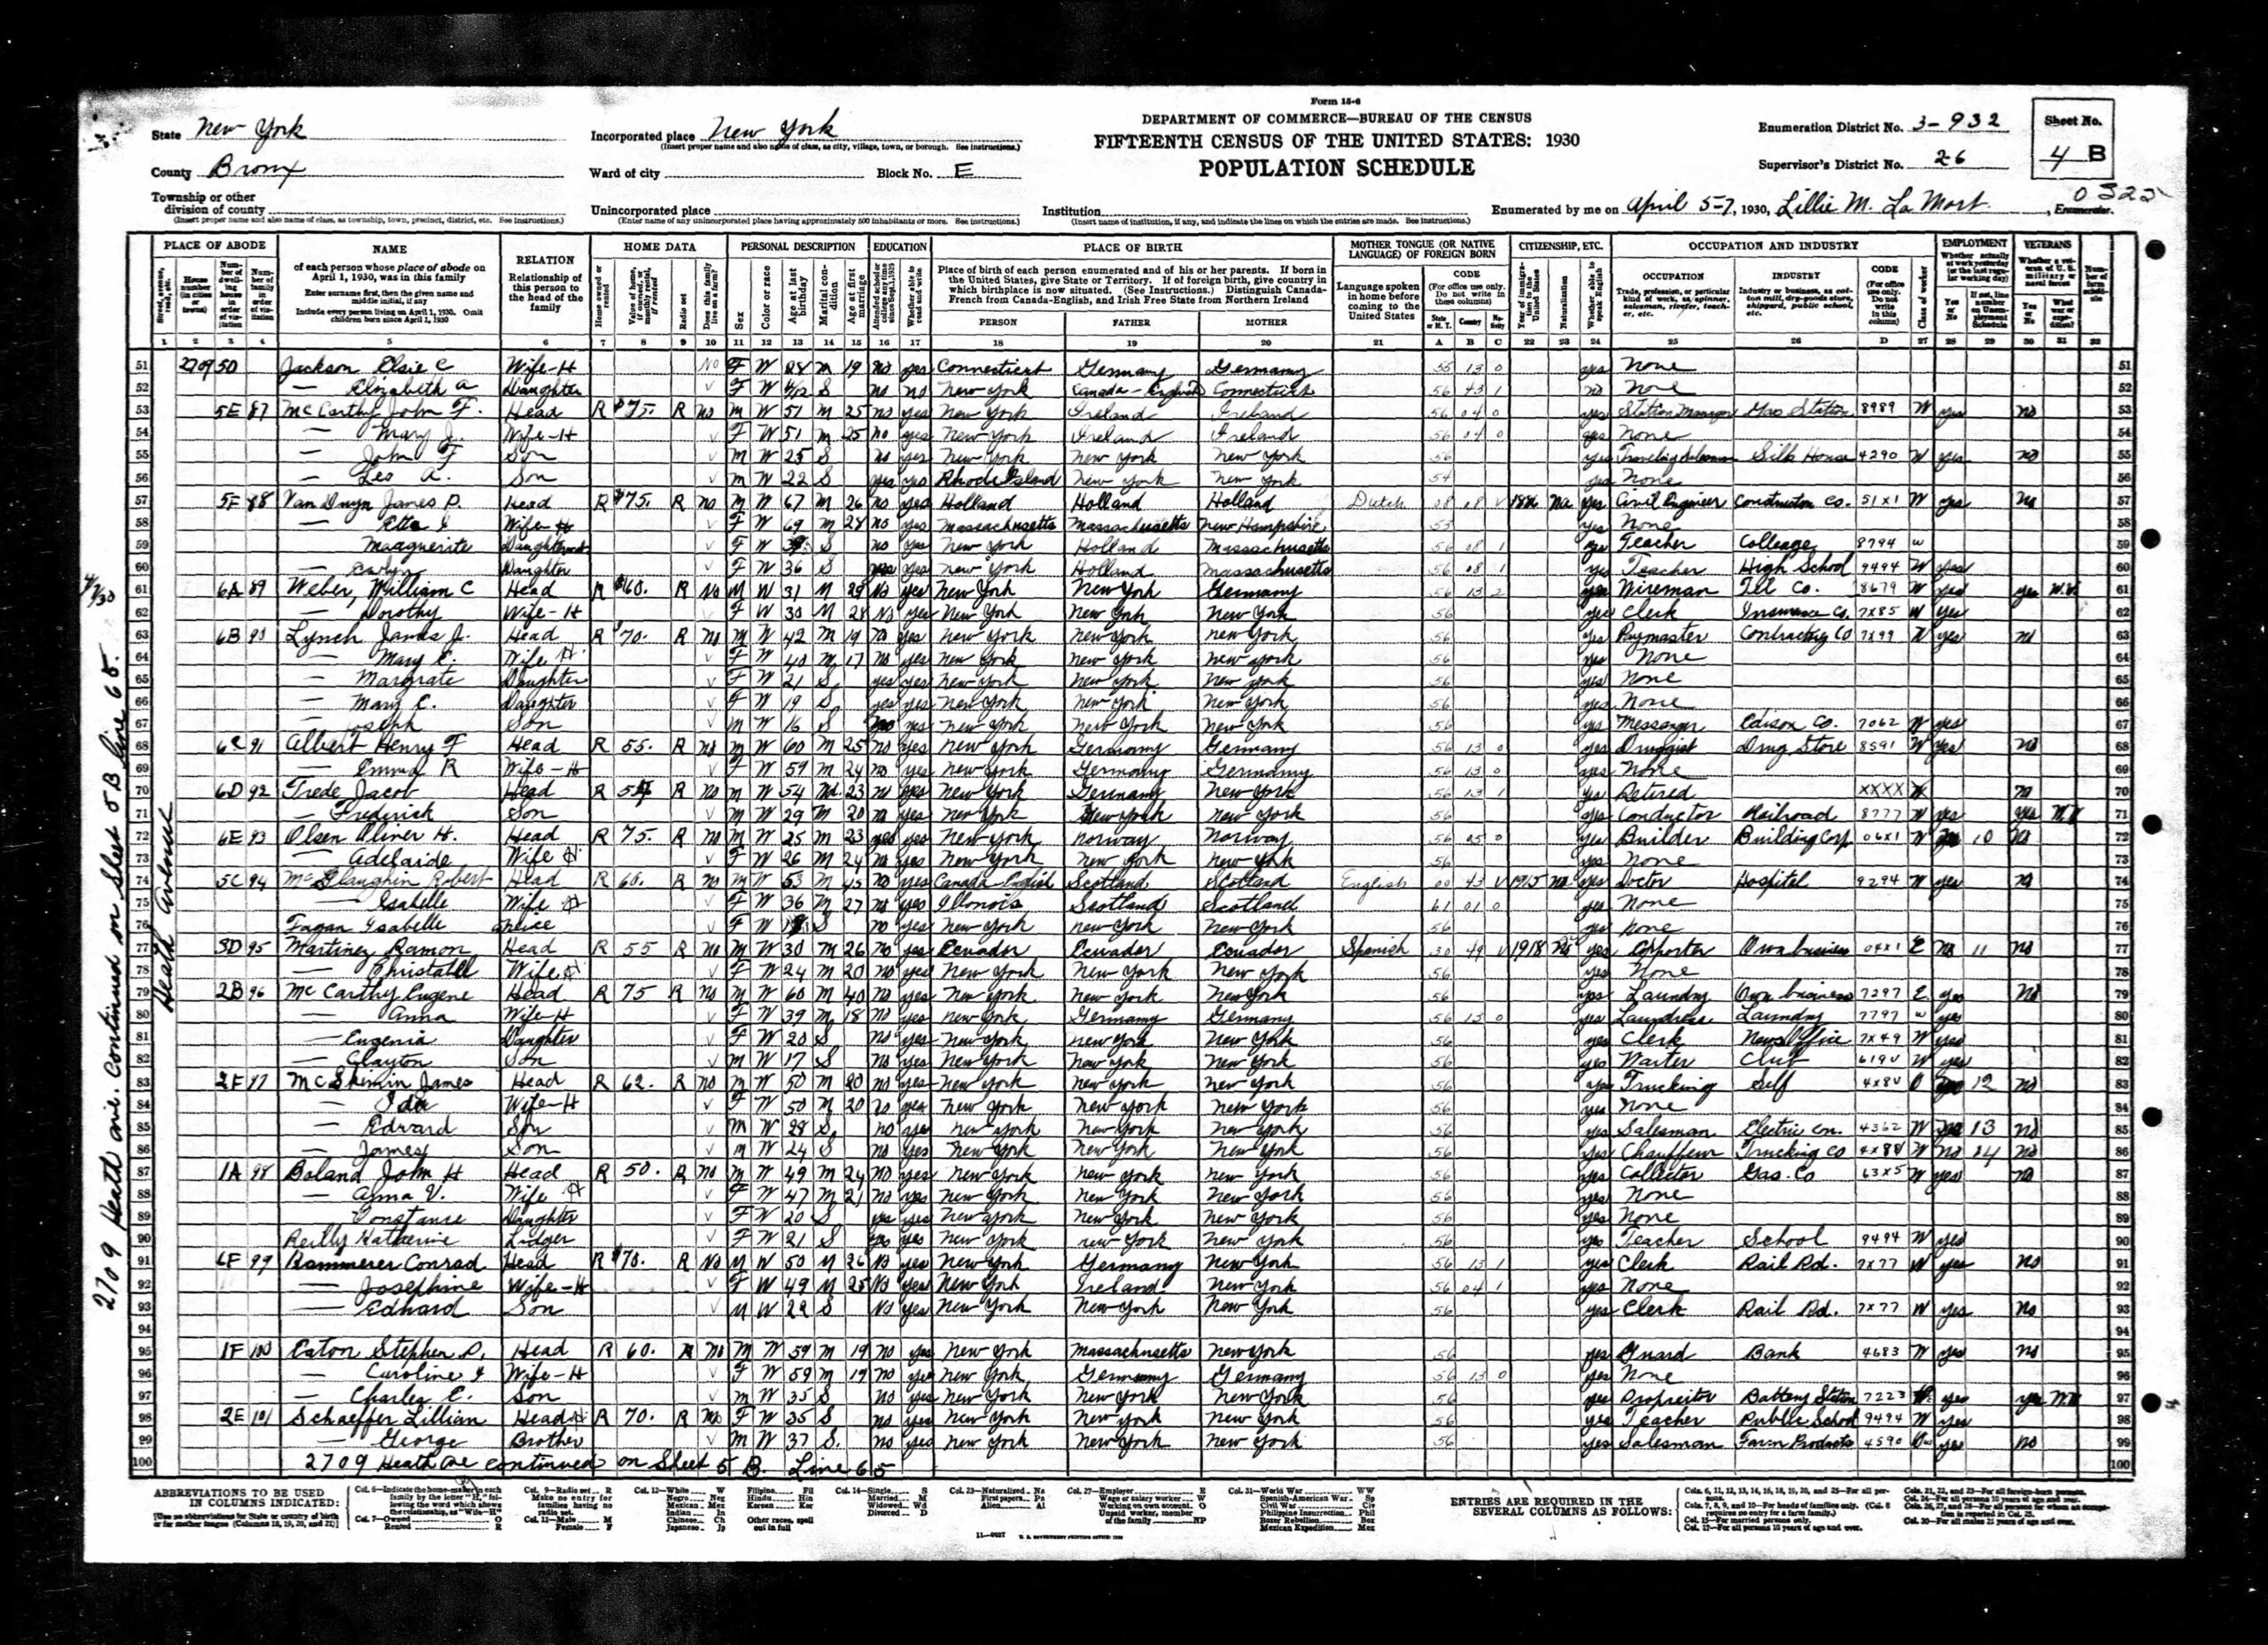 Form 15-6
DEPARTMENT OF COMMERCE—BUREAU OF THE CENSUS
FIFTEENTH CENSUS OF THE UNITED STATES: 1930
POPULATION SCHEDULE
State New York
County Bronx
Township or other division of county
(Insert proper name and also name of class, as township, town, precinct, district, etc. See instructions.)
Incorporated place New York
(Insert proper name and also name of class, as city, village, town, or borough. See instructions.)
Ward of city Block No. E
Unincorporated place
(Enter name of any unincorporated place having approximately 500 inhabitants or more. See instructions.)
Institution
(Insert name of institution, if any, and indicate the lines on which the entries are made. See instructions.)
Enumeration District No. 3-932
Supervisor's District No. 26
Sheet No. 4 B
0322
Enumerated by me on April 5-7, 1930, Lillie M. La Mort, Enumerator.
PLACE OF ABODE NAME RELATION HOME DATA PERSONAL DESCRIPTION EDUCATION PLACE OF BIRTH MOTHER TONGUE (OR NATIVE LANGUAGE) OF FOREIGN BORN CITIZENSHIP, ETC. OCCUPATION AND INDUSTRY EMPLOYMENT VETERANS
PERSON FATHER MOTHER
1 2 3 4 5 6 7 8 9 10 11 12 13 14 15 16 17 18 19 20 21 A B C 22 23 24 25 26 D 27 28 29 30 31 32
51 2709 50 Jackson Elsie C Wife-H No F W 28 M 19 no yes Connecticut Germany Germany 55 13 0 yes None 51
52 — Elizabeth A Daughter F W S no no New York Canada-English Connecticut 56 43 1 no None 52
53 5E 87 McCarthy John F. Head R $75. R no M W 51 M 25 no yes New York Ireland Ireland 56 04 0 yes Station Manager Gas Station 8989 W yes no 53
54 — Mary J. Wife-H F W 51 M 25 no yes New York Ireland Ireland 56 04 0 yes None 54
55 — John F Son M W 25 S no yes New York New York New York 56 yes Traveling Salesman Silk House 4290 W yes no 55
56 — Leo A. Son M W 22 S yes yes Rhode Island New York New York 54 yes None 56
57 5F 88 Van Duyn James P. Head R $75. R no M W 67 M 26 no yes Holland Holland Holland Dutch 08 08 V 1886 Na yes Civil Engineer Construction Co. 51X1 W yes no 57
58 — Etta Wife H F W 69 M 28 no yes Massachusetts Massachusetts New Hampshire 53 yes None 58
59 Marguerite Daughter F W S no yes New York Holland Massachusetts 56 08 1 yes Teacher Colleage 8794 W 59
60 — Daughter F W 36 S yes yes New York Holland Massachusetts 56 08 1 yes Teacher High School 9494 W yes 60
61 6A 89 Weber, William C Head R $60. R No M W 31 M 29 No yes New York New York Germany 56 13 2 yes Wireman Tel Co. 8679 W yes yes W.W. 61
62 — Dorothy Wife-H F W 30 M 28 No yes New York New York New York 56 yes Clerk Insurance Co. 7X85 W yes 62
63 6B 90 Lynch James J. Head R $70. R no M W 42 M 19 no yes New York New York New York 56 yes Paymaster Contracting Co 7X99 W yes no 63
64 — Mary E. Wife H F W 40 M 17 no yes New York New York New York 56 yes None 64
65 — Margrate Daughter F W 21 S yes yes New York New York New York 56 yes None 65
66 — Mary C. Daughter F W 19 S yes yes New York New York New York 56 yes None 66
67 — Joseph Son M W 16 S no yes New York New York New York 56 yes Messanger Edison Co. 7062 W yes 67
68 6C 91 Albert Henry F Head R 55. R no M W 60 M 25 no yes New York Germany Germany 56 13 0 yes Druggist Drug Store 8591 W yes no 68
69 — Emma R Wife-H F W 59 M 24 no yes New York Germany Germany 56 13 0 yes None 69
70 6D 92 Trede Jacob Head R R no M W 54 Wd. 23 no yes New York Germany New York 56 13 1 yes Retired XXXX no 70
71 — Frederick Son M W 29 M 20 no yes New York New York New York 56 yes Conductor Railroad 8777 W yes yes W.W 71
72 6E 93 Olsen Oliver H. Head R 75. R no M W 25 M 23 yes yes New York Norway Norway 56 05 0 yes Builder Building Corp 06X1 W 10 no 72
73 — Adelaide Wife H F W 26 M 24 no yes New York New York New York 56 yes None 73
74 5C 94 McGlaughin Robert Head R 60. R no M W 53 M 45 no yes Canada-English Scotland Scotland English 00 43 V 1915 na yes Doctor Hospital 9294 W yes no 74
75 — Isabelle Wife H F W 36 M 27 no yes Illonois Scotland Scotland 61 01 0 yes None 75
76 Fagan Isabelle neice F W S no yes New York New York New York 56 yes None 76
77 3D 95 Martinez Ramon Head R 55 R no M W 30 M 26 no yes Ecuador Ecuador Ecuador Spanish 30 49 V 1918 yes Own business 04X1 E no 11 no 77
78 — Christabel Wife H F W 24 M 20 no yes New York New York New York 56 yes None 78
79 2B 96 McCarthy Eugene Head R 75 R no M W 60 M 40 no yes New York New York New York 56 yes Laundry Own business 7297 E yes no 79
80 — Anna Wife H F W 39 M 18 no yes New York Germany Germany 56 13 0 yes Laundress Laundry 7797 W yes 80
81 — Eugenia Daughter F W 20 S no yes New York New York New York 56 yes Clerk News Office 7X49 W yes 81
82 — Clayton Son M W 17 S no yes New York New York New York 56 yes Waiter Club 619V W yes 82
83 2F 97 McSherwin James Head R 62. R no M W 50 M 20 no yes New York New York New York 56 yes Trucking Self 4X8V O 12 no 83
84 — Ida Wife-H F W 50 M 20 no yes New York New York New York 56 yes None 84
85 — Edward Son M W 28 S no yes New York New York New York 56 yes Salesman Electric Con. 4362 W 13 no 85
86 — James Son M W 24 S no yes New York New York New York 56 yes Chauffeur Trucking Co 4X8V W no 14 no 86
87 1A 98 Boland John H Head R 50. R no M W 49 M 24 no yes New York New York New York 56 yes Collector Gas. Co 63X5 W yes no 87
88 — Anna V. Wife H F W 47 M 21 no yes New York New York New York 56 yes None 88
89 Constance Daughter F W 20 S yes yes New York New York New York 56 yes None 89
90 Reilly Katherine Lodger F W 21 S yes yes New York New York New York 56 yes Teacher School 9494 W yes 90
91 6F 99 Bammerer Conrad Head R $70. R No M W 50 M 26 No yes New York Germany New York 56 13 1 yes Clerk Rail Rd. 7X77 W yes no 91
92 — Josephine Wife-H F W 49 M 25 No yes New York Ireland New York 56 04 1 yes None 92
93 — Edward Son M W 22 S No yes New York New York New York 56 yes Clerk Rail Rd. 7X77 W yes No 93
94 94
95 1F 100 Eaton Stephen D. Head R 60. R no M W 59 M 19 no yes New York Massachusetts New York 56 yes Guard Bank 4683 W yes no 95
96 — Caroline Wife-H F W 59 M 19 no yes New York Germany Germany 56 13 0 yes None 96
97 — Charles E. Son M W 35 S no yes New York New York New York 56 yes Propreitor Battery Station 7223 yes yes W.W 97
98 2E 101 Schaeffer Lillian Head H R 70. R no F W 35 S no yes New York New York New York 56 yes Teacher Public School 9494 W yes 98
99 — George Brother M W 37 S. no yes New York New York New York 56 yes Salesman Farm Products 4590 yes no 99
100 2709 Heath Ave continued on Sheet 5 B. Line 65 100
Heath Avenue
2709 Heath ave. Continued on Sheet 5B line 65.
ABBREVIATIONS TO BE USED IN COLUMNS INDICATED:
ENTRIES ARE REQUIRED IN THE SEVERAL COLUMNS AS FOLLOWS: